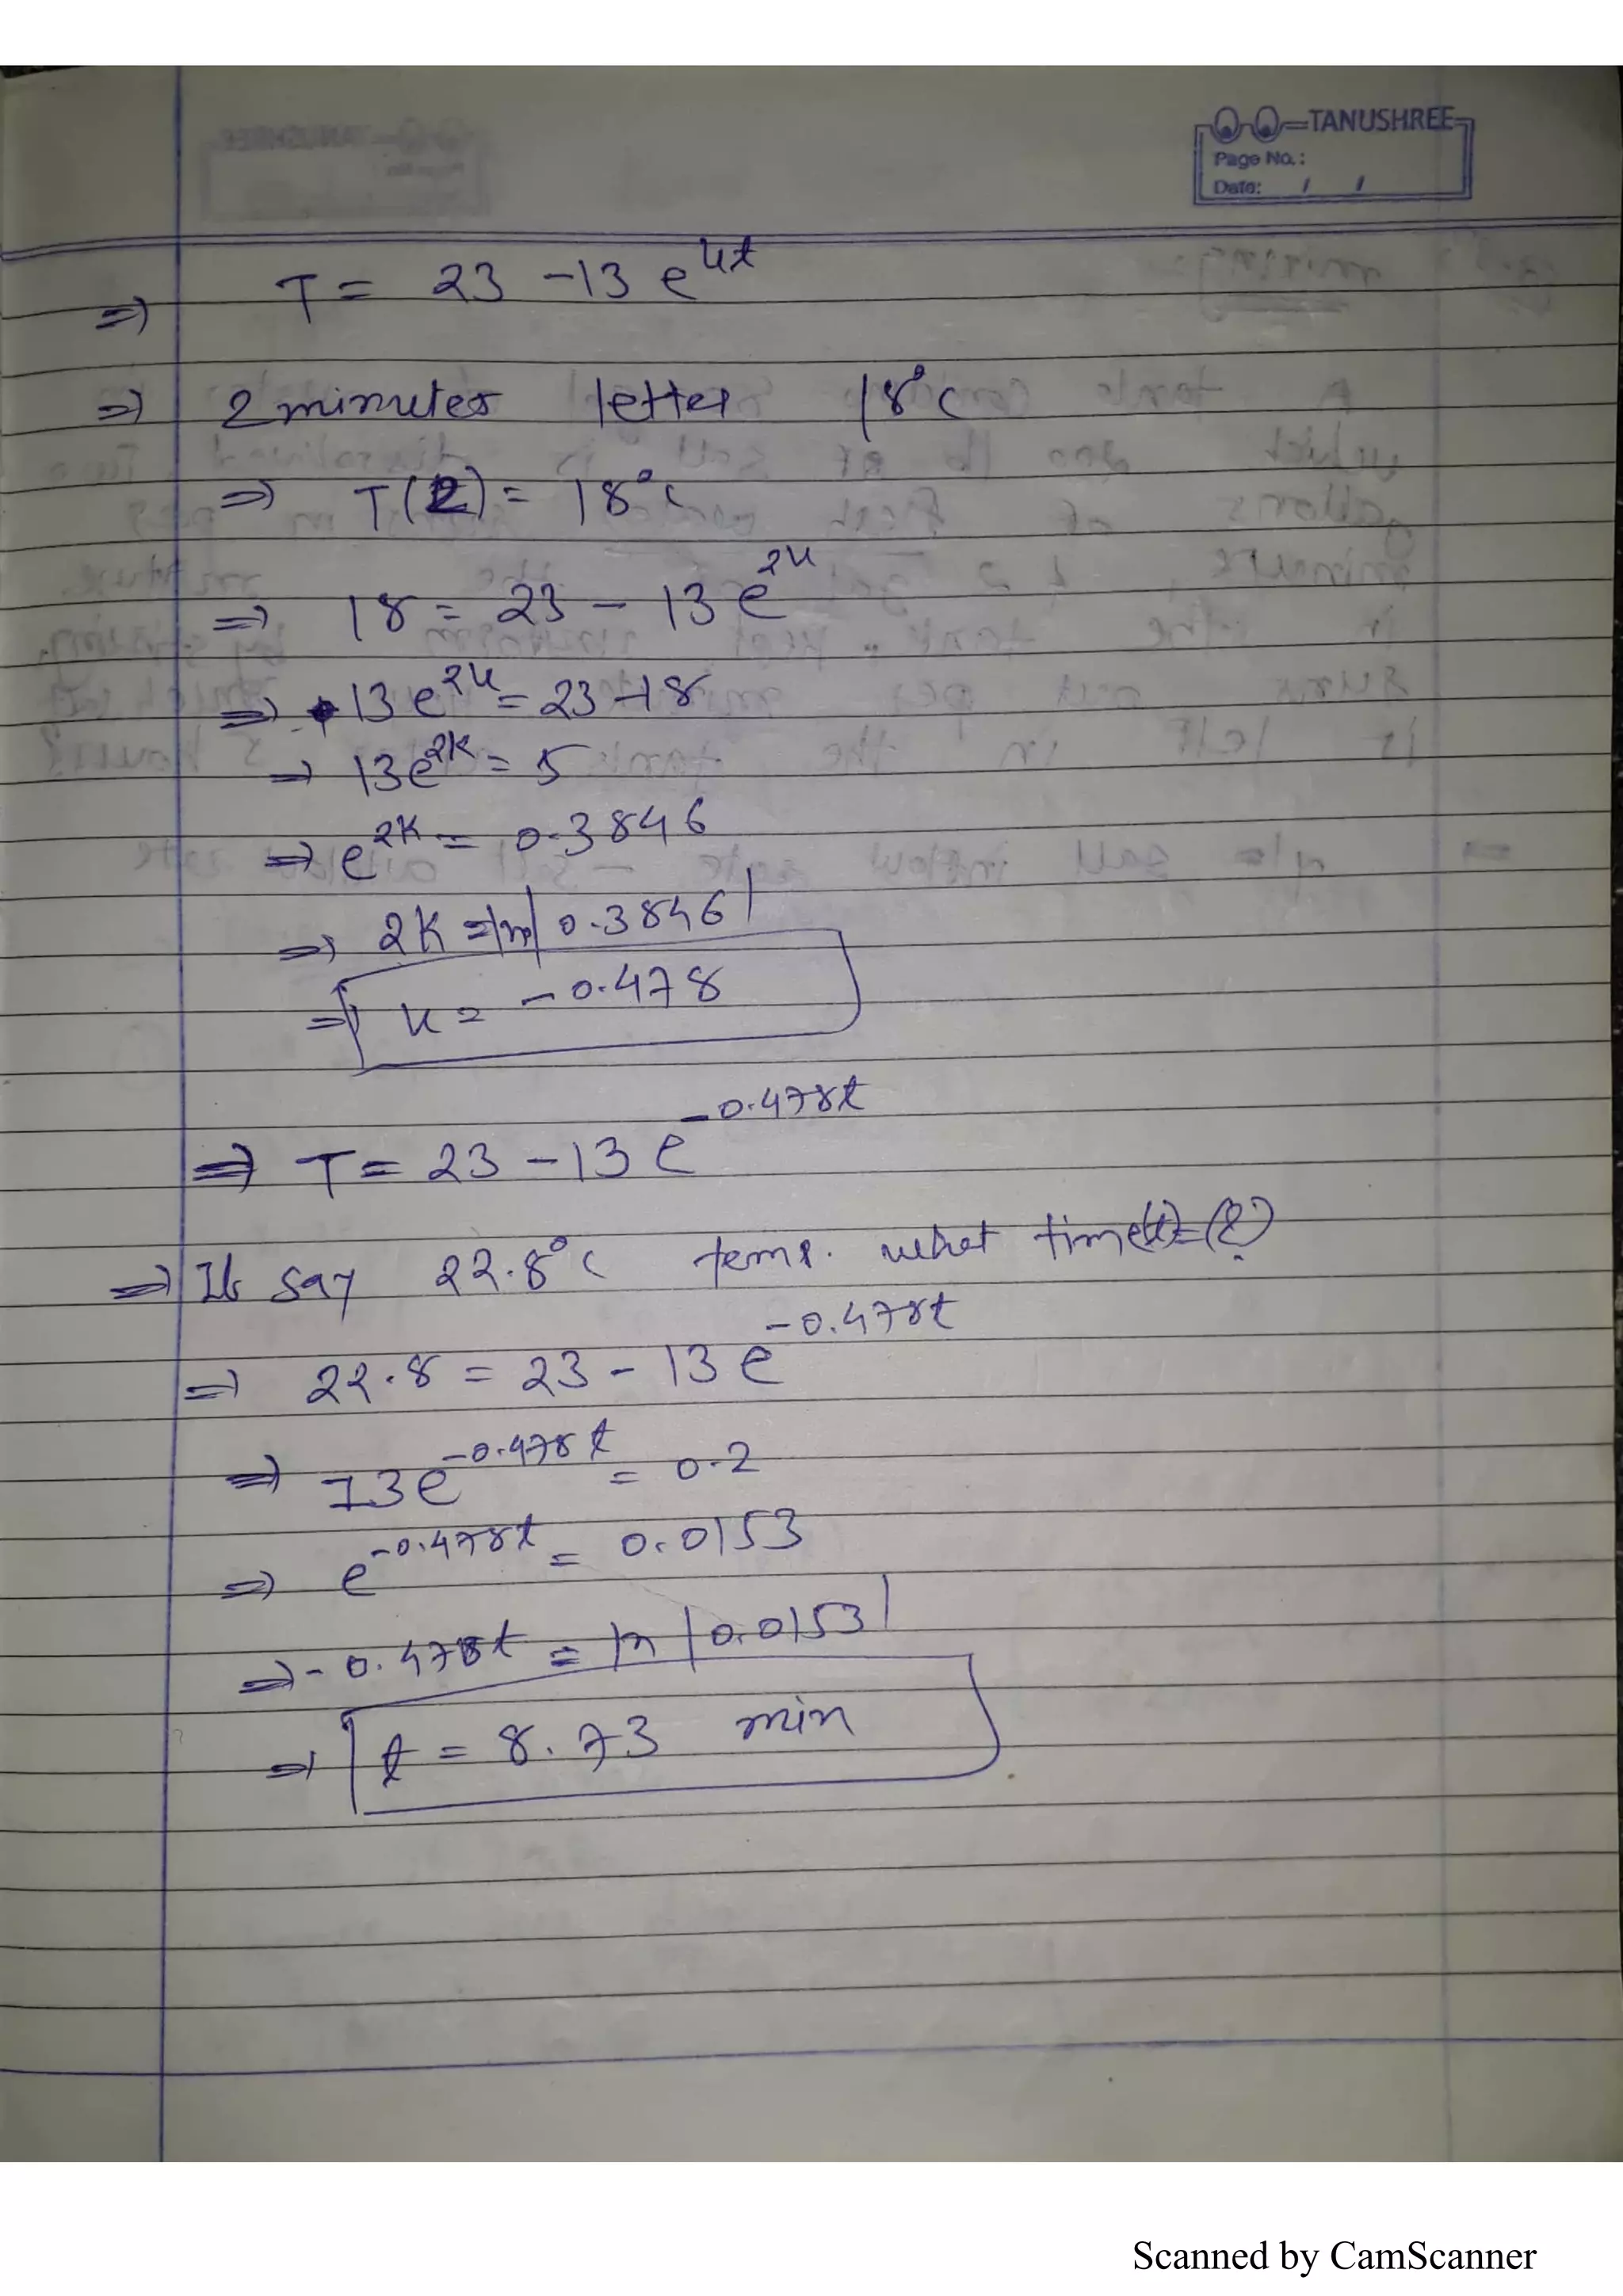 TANUSHREE
Page No.:
Date: / /
⇒ T = 23 - 13 e^kt
⇒ 2 minutes letter 18°C
⇒ T(2) = 18°C
⇒ 18 = 23 - 13 e^2k
⇒ 13 e^2k = 23 - 18
⇒ 13e^2k = 5
⇒ e^2k = 0.3846
⇒ 2K = ln|0.3846|
⇒ k = -0.478
⇒ T = 23 - 13 e^-0.478t
⇒ If say 22.8°C temp. what time(t)=(?)
⇒ 22.8 = 23 - 13 e^-0.478t
⇒ 13e^-0.478t = 0.2
⇒ e^-0.478t = 0.0153
⇒ -0.478t = ln|0.0153|
⇒ t = 8.73 min
Scanned by CamScanner